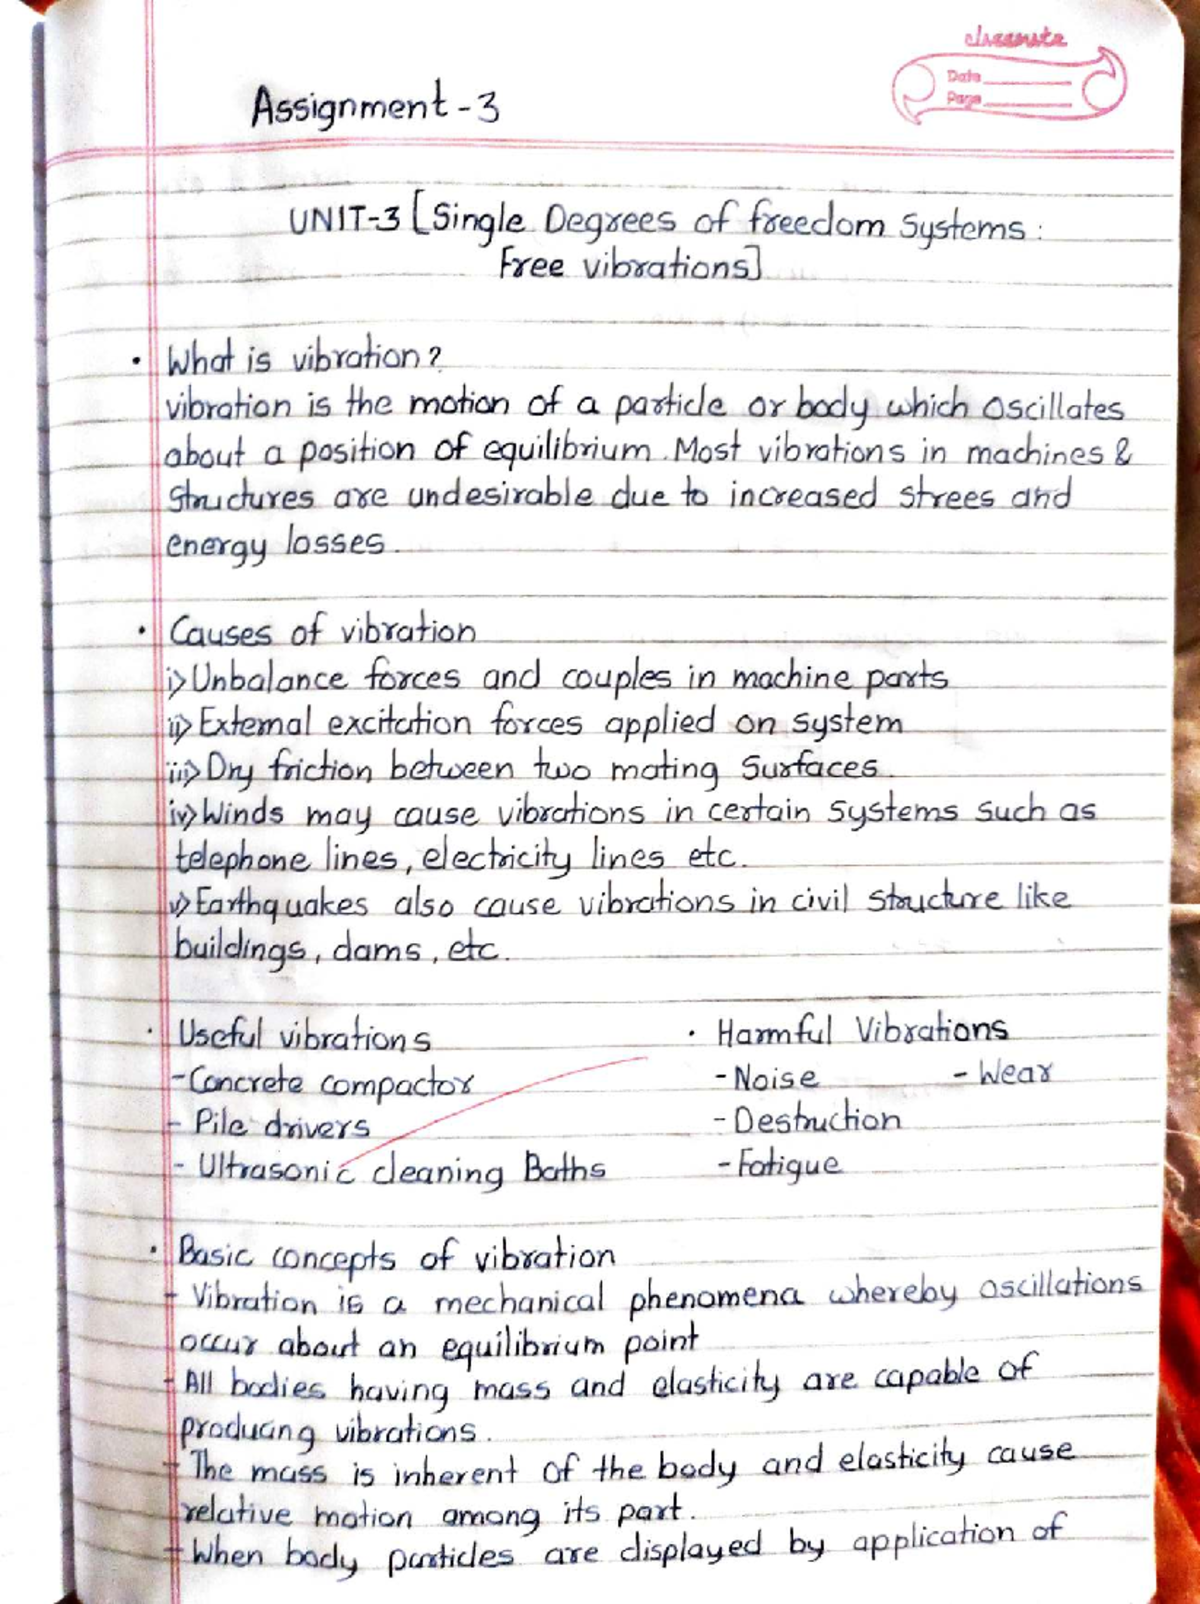 classmate
Date
Page
Assignment - 3
UNIT-3 [Single Degrees of freedom Systems :
Free vibrations]
• What is vibration?
vibration is the motion of a particle or body which oscillates
about a position of equilibrium. Most vibrations in machines &
structures are undesirable due to increased strees and
energy losses.
• Causes of vibration
i) Unbalance forces and couples in machine parts
ii) External excitation forces applied on system
iii) Dry friction between two mating surfaces.
iv) Winds may cause vibrations in certain systems such as
telephone lines, electricity lines etc.
v) Earthquakes also cause vibrations in civil structure like
buildings, dams, etc.
• Useful vibrations
- Concrete compactor
- Pile drivers
- Ultrasonic cleaning Baths
• Harmful Vibrations
- Noise - Wear
- Destruction
- Fatigue
• Basic concepts of vibration
- Vibration is a mechanical phenomena whereby oscillations
occur about an equilibrium point
- All bodies having mass and elasticity are capable of
producing vibrations.
- The mass is inherent of the body and elasticity cause
relative motion among its part.
- When body particles are displayed by application of